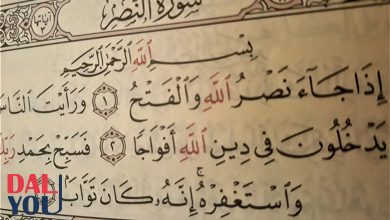 سُورَةُ النَّصْرِ
آيَاتُهَا
بِسْمِ اللَّهِ الرَّحْمَٰنِ الرَّحِيمِ
إِذَا جَآءَ نَصْرُ اللَّهِ وَالْفَتْحُ ١ وَرَأَيْتَ النَّاسَ
يَدْخُلُونَ فِي دِينِ اللَّهِ أَفْوَاجًا ٢ فَسَبِّحْ بِحَمْدِ رَبِّكَ
وَاسْتَغْفِرْهُ ۚ إِنَّهُ كَانَ تَوَّابًا
DAL
YOU